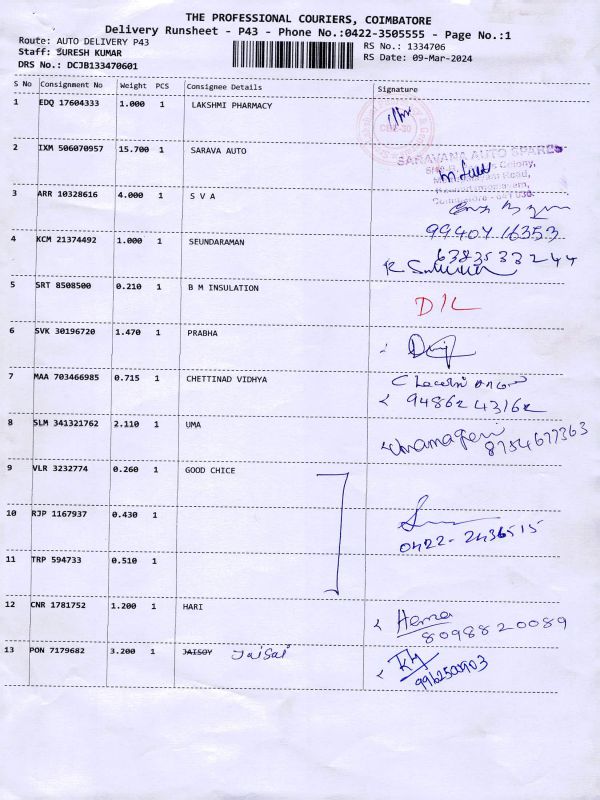 THE PROFESSIONAL COURIERS, COIMBATORE
Delivery Runsheet - P43 - Phone No.:0422-3505555 - Page No.:1
Route: AUTO DELIVERY P43
Staff: SURESH KUMAR
DRS No.: DCJB133470601
RS No.: 1334706
RS Date: 09-Mar-2024
S No Consignment No Weight PCS Consignee Details Signature
1 EDQ 17604333 1.000 1 LAKSHMI PHARMACY
2 IXM 506070957 15.700 1 SARAVA AUTO
SARAVANA AUTO SPARES
3 ARR 10328616 4.000 1 S V A
99404 16353
4 KCM 21374492 1.000 1 SEUNDARAMAN
63835 33244
5 SRT 8508500 0.210 1 B M INSULATION D/L
6 SVK 30196720 1.470 1 PRABHA
7 MAA 703466985 0.715 1 CHETTINAD VIDHYA
94862 43162
8 SLM 341321762 2.110 1 UMA
8754677363
9 VLR 3232774 0.260 1 GOOD CHICE
10 RJP 1167937 0.430 1
0422-2436515
11 TRP 594733 0.510 1
12 CNR 1781752 1.200 1 HARI Hema
8098820089
13 PON 7179682 3.200 1 JAISOY Jaisai
9962500903